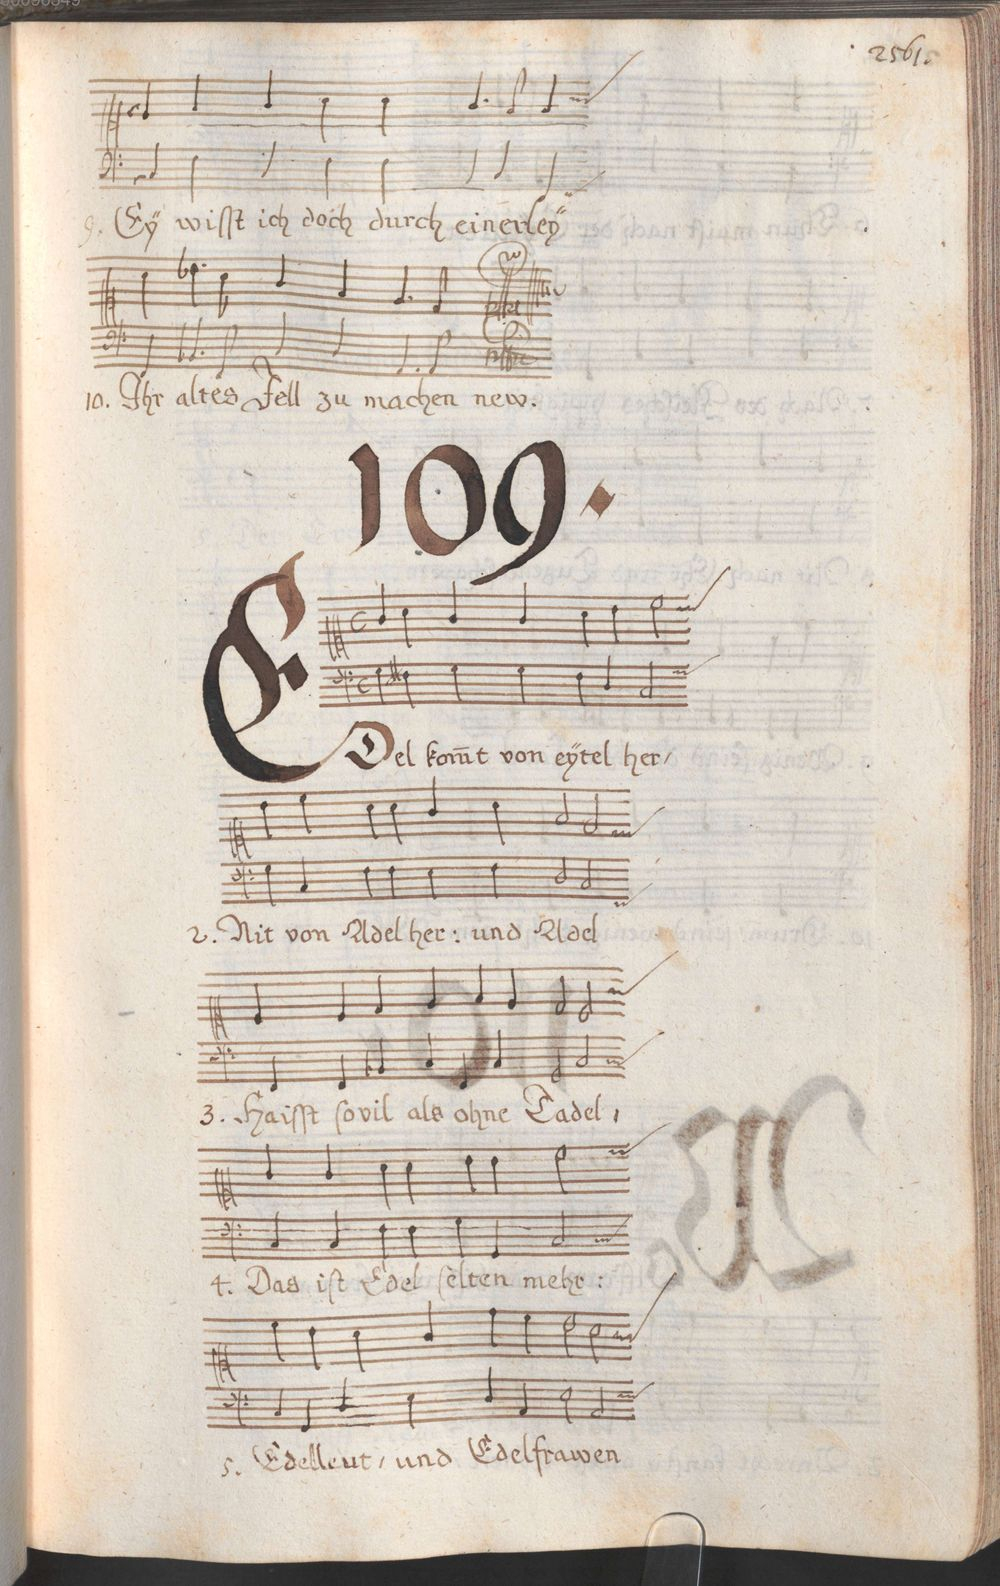 256.
9. Eÿ wisst ich doch durch einerleÿ
10. Ihr altes Fell zu machen new.
109.
EDel kom̄t von eÿtel her/
2. Nit von Adel her: und Adel
3. Haisst sovil als ohne Tadel,
4. Das ist Edel selten mehr:
5. Edelleut, und Edelfrawen